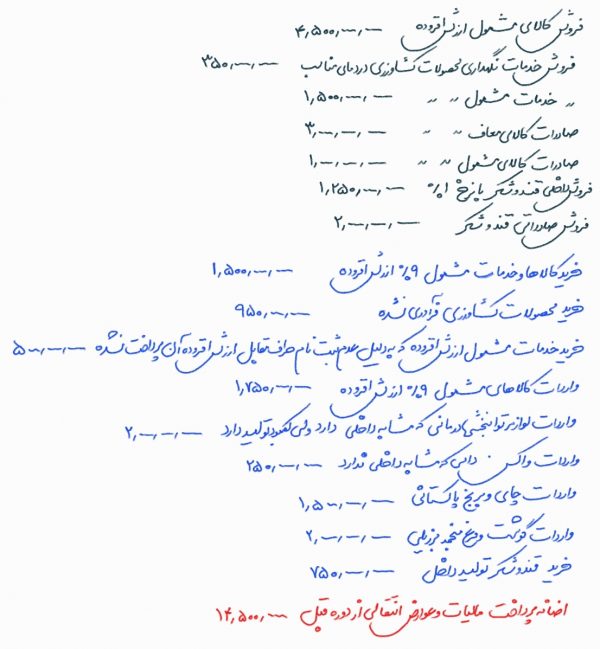 فروش کالای مشمول ارزش افزوده ۴,۵۰۰,۰۰۰,۰۰۰
فروش خدمات نگهداری محصولات کشاورزی در دمای مناسب ۳۵۰,۰۰۰,۰۰۰
〃 خدمات مشمول 〃 〃 ۱,۵۰۰,۰۰۰,۰۰۰
صادرات کالای معاف 〃 〃 ۳,۰۰۰,۰۰۰,۰۰۰
صادرات کالای مشمول 〃 〃 ۱,۰۰۰,۰۰۰,۰۰۰
فروش داخلی قند و شکر با نرخ ۱٪ ۱,۲۵۰,۰۰۰,۰۰۰
فروش صادراتی قند و شکر ۲,۰۰۰,۰۰۰,۰۰۰
خرید کالاها و خدمات مشمول ۹٪ ارزش افزوده ۱,۵۰۰,۰۰۰,۰۰۰
خرید محصولات کشاورزی فرآوری نشده ۹۵۰,۰۰۰,۰۰۰
خرید خدمات مشمول ارزش افزوده که به دلیل عدم ثبت نام طرف مقابل ارزش افزوده آن پرداخت نشده ۵۰۰,۰۰۰,۰۰۰
واردات کالاهای مشمول ۹٪ ارزش افزوده ۱,۷۵۰,۰۰۰,۰۰۰
واردات لوازم توانبخشی درمانی که مشابه داخلی دارد ولی کمبود تولید دارد ۲,۰۰۰,۰۰۰,۰۰۰
واردات واکسن دامی که مشابه داخلی ندارد ۲۵۰,۰۰۰,۰۰۰
واردات چای و برنج پاکستانی ۱,۵۰۰,۰۰۰,۰۰۰
واردات گوشت و مرغ منجمد برزیلی ۲,۰۰۰,۰۰۰,۰۰۰
خرید قند و شکر تولید داخل ۷۵۰,۰۰۰,۰۰۰
اضافه پرداخت مالیات و عوارض انتقالی از دوره قبل ۱۴,۵۰۰,۰۰۰